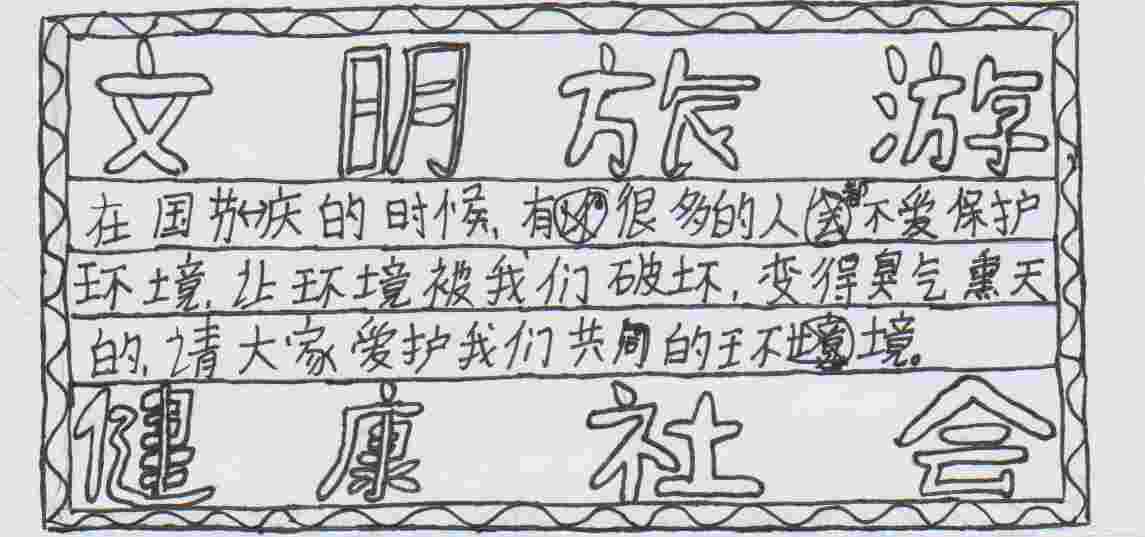 文明旅游
在国节庆的时候,有很多的人都不爱保护
环境,让环境被我们破坏,变得臭气熏天
的,请大家爱护我们共同的环境。
健康社会